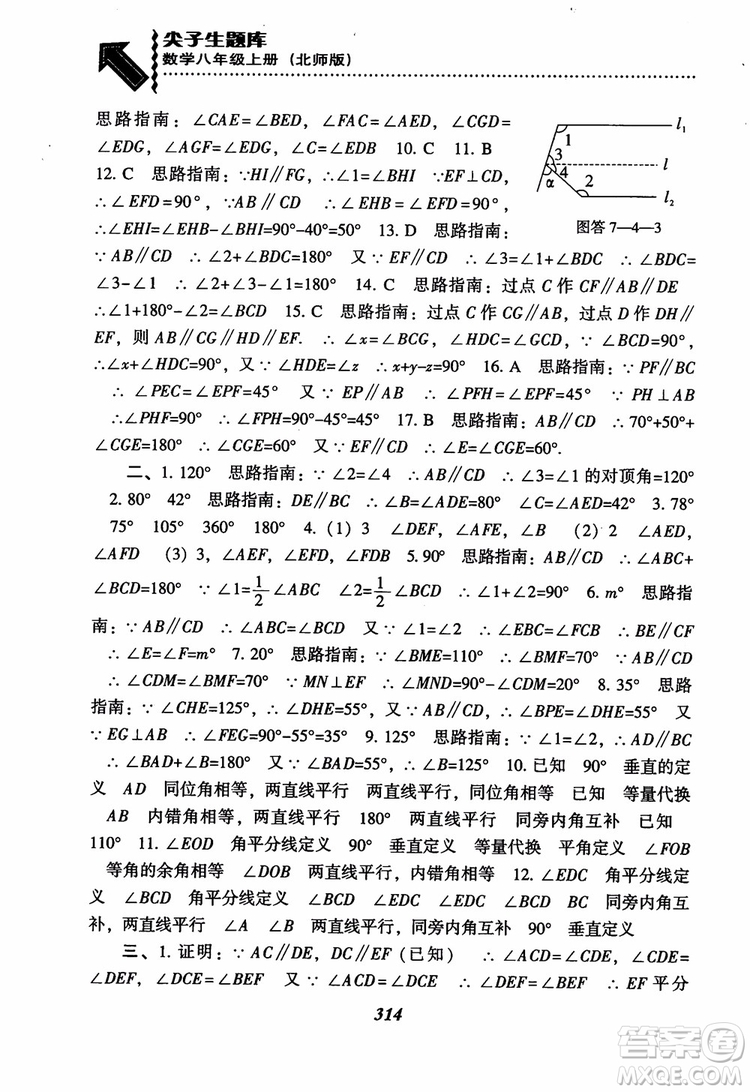 尖子生题库
数学八年级上册（北师版）
思路指南：∠CAE=∠BED，∠FAC=∠AED，∠CGD=
∠EDG，∠AGF=∠EDG，∠C=∠EDB 10. C 11. B
12. C 思路指南：∵HI∥FG，∴∠1=∠BHI ∵EF⊥CD，
∴∠EFD=90°，∵AB∥CD ∴∠EHB=∠EFD=90°
∴∠EHI=∠EHB-∠BHI=90°-40°=50° 13. D 思路指南：
∵AB∥CD ∴∠2+∠BDC=180° 又∵EF∥CD ∴∠3=∠1+∠BDC ∴∠BDC=
∠3-∠1 ∴∠2+∠3-∠1=180° 14. C 思路指南：过点 C 作 CF∥AB∥DE
∴∠1+180°-∠2=∠BCD 15. C 思路指南：过点 C 作 CG∥AB，过点 D 作 DH∥
EF，则 AB∥CG∥HD∥EF. ∴∠x=∠BCG，∠HDC=∠GCD，∵∠BCD=90°
∴∠x+∠HDC=90°，又∵∠HDE=∠z ∴x+y-z=90° 16. A 思路指南：∵PF∥BC
∴∠PEC=∠EPF=45° 又∵EP∥AB ∴∠PFH=∠EPF=45° ∵PH⊥AB
∴∠PHF=90° ∴∠FPH=90°-45°=45° 17. B 思路指南：∵AB∥CD ∴70°+50°+
∠CGE=180° ∴∠CGE=60° 又∵EF∥CD ∴∠E=∠CGE=60°.
二、1. 120° 思路指南：∵∠2=∠4 ∴AB∥CD ∴∠3=∠1 的对顶角=120°
2. 80° 42° 思路指南：DE∥BC ∴∠B=∠ADE=80° ∠C=∠AED=42° 3. 78°
75° 105° 360° 180° 4. (1) 3 ∠DEF，∠AFE，∠B (2) 2 ∠AED，
∠AFD (3) 3，∠AEF，∠EFD，∠FDB 5. 90° 思路指南：AB∥CD ∴∠ABC+
∠BCD=180° ∵∠1=1/2∠ABC ∠2=1/2∠BCD ∴∠1+∠2=90° 6. m° 思路指
南：∵AB∥CD ∴∠ABC=∠BCD 又∵∠1=∠2 ∴∠EBC=∠FCB ∴BE∥CF
∴∠E=∠F=m° 7. 20° 思路指南：∵∠BME=110° ∴∠BMF=70° ∵AB∥CD
∴∠CDM=∠BMF=70° ∵MN⊥EF ∴∠MND=90°-∠CDM=20° 8. 35° 思路
指南：∵∠CHE=125°，∴∠DHE=55°，又∵AB∥CD ∴∠BPE=∠DHE=55° 又
∵EG⊥AB ∴∠FEG=90°-55°=35° 9. 125° 思路指南：∵∠1=∠2 ∴AD∥BC
∴∠BAD+∠B=180° 又∵∠B=55° ∴∠BAD=125° 10. 已知 90° 垂直的定
义 AD 同位角相等，两直线平行 两直线平行，同位角相等 已知 等量代换
AB 内错角相等，两直线平行 180° 两直线平行，同旁内角互补 已知
110° 11. ∠EOD 角平分线定义 90° 垂直定义 等量代换 平角定义 ∠FOB
等角的余角相等 ∠DOB 两直线平行，内错角相等 12. ∠EDC 角平分线定
义 ∠BCD 角平分线定义 ∠BCD ∠EDC ∠BCD BC 同旁内角互
补，两直线平行 ∠A ∠B 两直线平行，同旁内角互补 90° 垂直定义
三、1. 证明：∵AC∥DE，DC∥EF（已知） ∴∠ACD=∠CDE，∠CDE=
∠DEF，∠DCE=∠BEF 又∵∠ACD=∠DCE ∴∠DEF=∠BEF ∴EF 平分
314
1
l₁
3
l
4
α
2
l₂
图答 7—4—3
答案圈
MXQE.COM